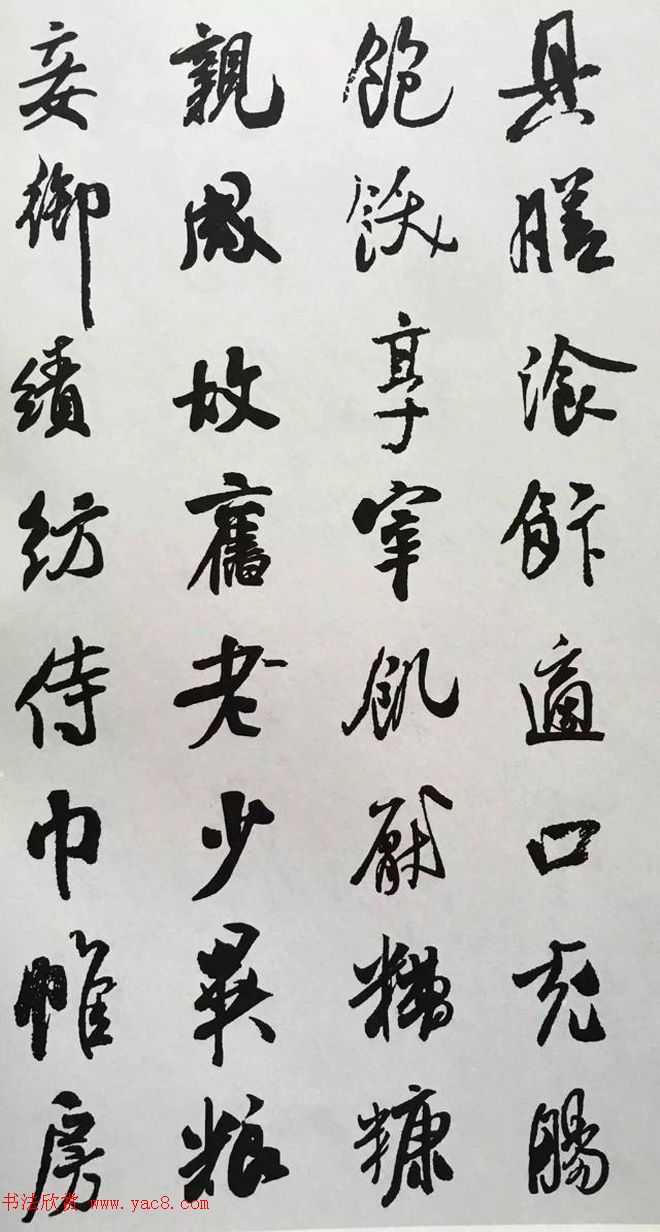 具膳湌飰適口充腸
飽飫享宰飢厭糟糠
親戚故舊老少異粮
妾御績紡侍巾帷房
书法欣赏 www.yac8.com